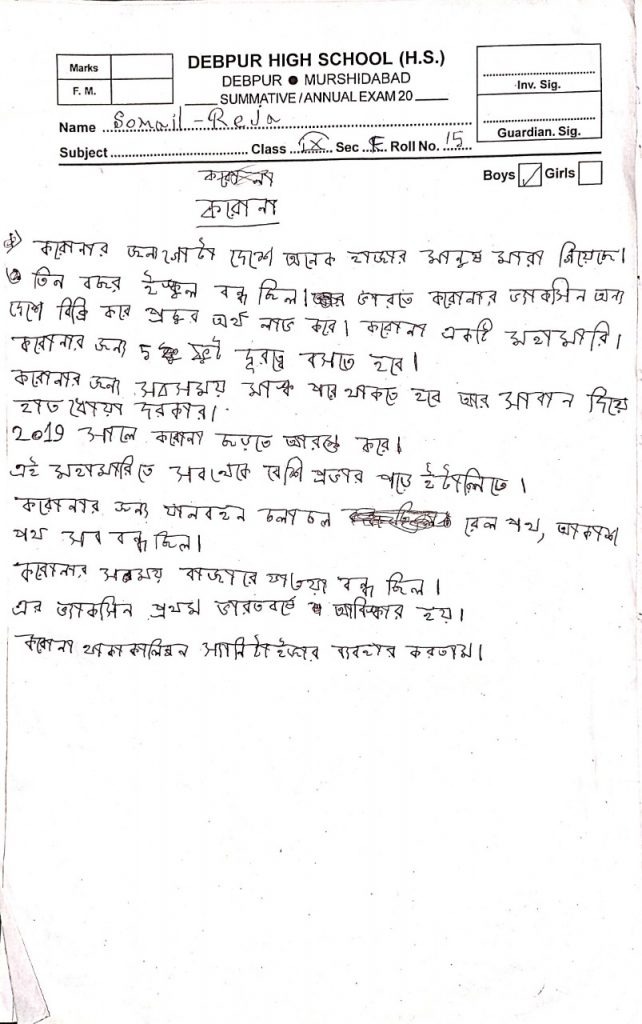 Marks
F. M.
DEBPUR HIGH SCHOOL (H.S.)
DEBPUR ● MURSHIDABAD
SUMMATIVE / ANNUAL EXAM 20
Inv. Sig.
Guardian. Sig.
Name Somail-Reja
Subject Class IX Sec F Roll No. 15
Boys Girls
করোনা
করোনা
করোনার জন্য গোটা দেশে অনেক হাজার মানুষ মারা গিয়েছে।
তিন বছর ইস্কুল বন্ধ ছিল। ভারতে করোনার ভ্যাকসিন অন্য
দেশে বিক্রি করে প্রচুর অর্থ লাভ করে। করোনা একটি মহামারি।
করোনার জন্য 5 ফুট দূরত্বে বসতে হবে।
করোনার জন্য সবসময় মাস্ক পরে থাকতে হবে আর সাবান দিয়ে
হাত ধোয়া দরকার।
2019 সালে করোনা ছড়তে আরম্ভ করে।
এই মহামারিতে সবথেকে বেশি প্রভাব পড়ে ইটালিতে।
করোনার জন্য যানবহন চলাচল রেল পথ, আকাশ
পথ সব বন্ধ ছিল।
করোনার সময় বাজারে যাওয়া বন্ধ ছিল।
এর ভ্যাকসিন প্রথম ভারতবর্ষে আবিস্কার হয়।
করোনা থাকাকালিন স্যানিটাইজার ব্যবহার করতাম।